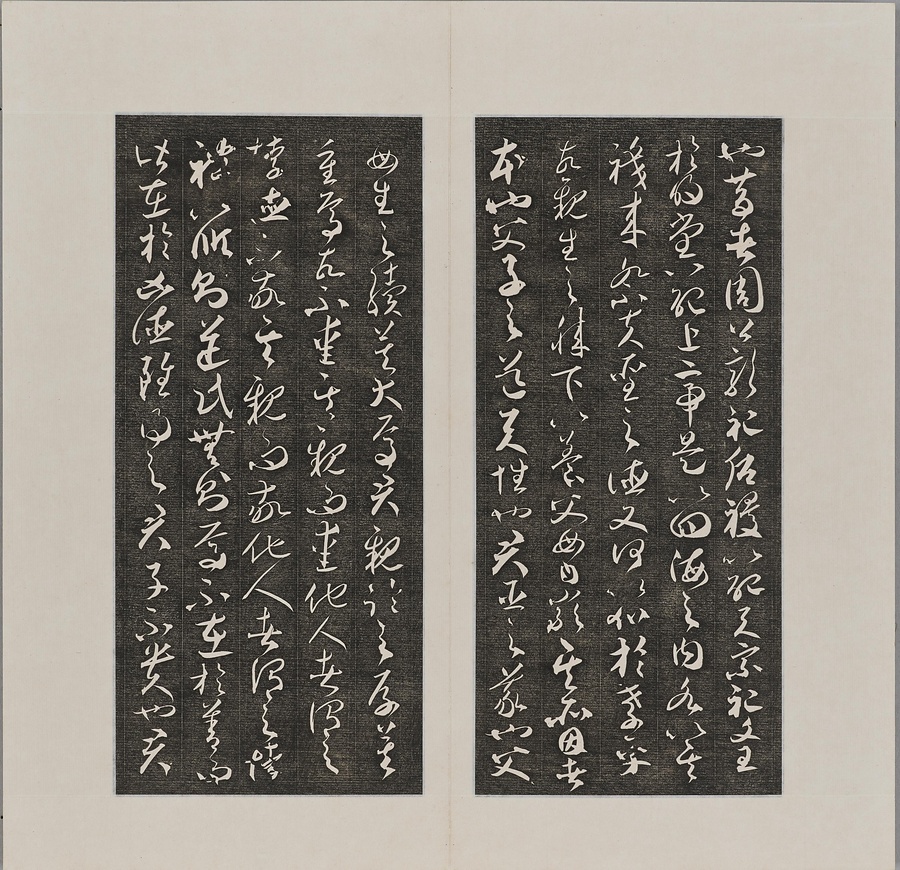 也昔者周公郊祀后稷以配天宗祀文王
於明堂以配上帝是以四海之內各以其
職来祭夫聖人之德又何以加於孝乎
故親生之膝下以養父母日嚴其所因者
本也父子之道天性也君臣之義也父
母生之續莫大焉君親臨之厚莫
重焉故不愛其親而愛他人者謂之
悖德不敬其親而敬他人者謂之悖
禮以順則逆民無則焉不在於善而
皆在於凶德雖得之君子不貴也君